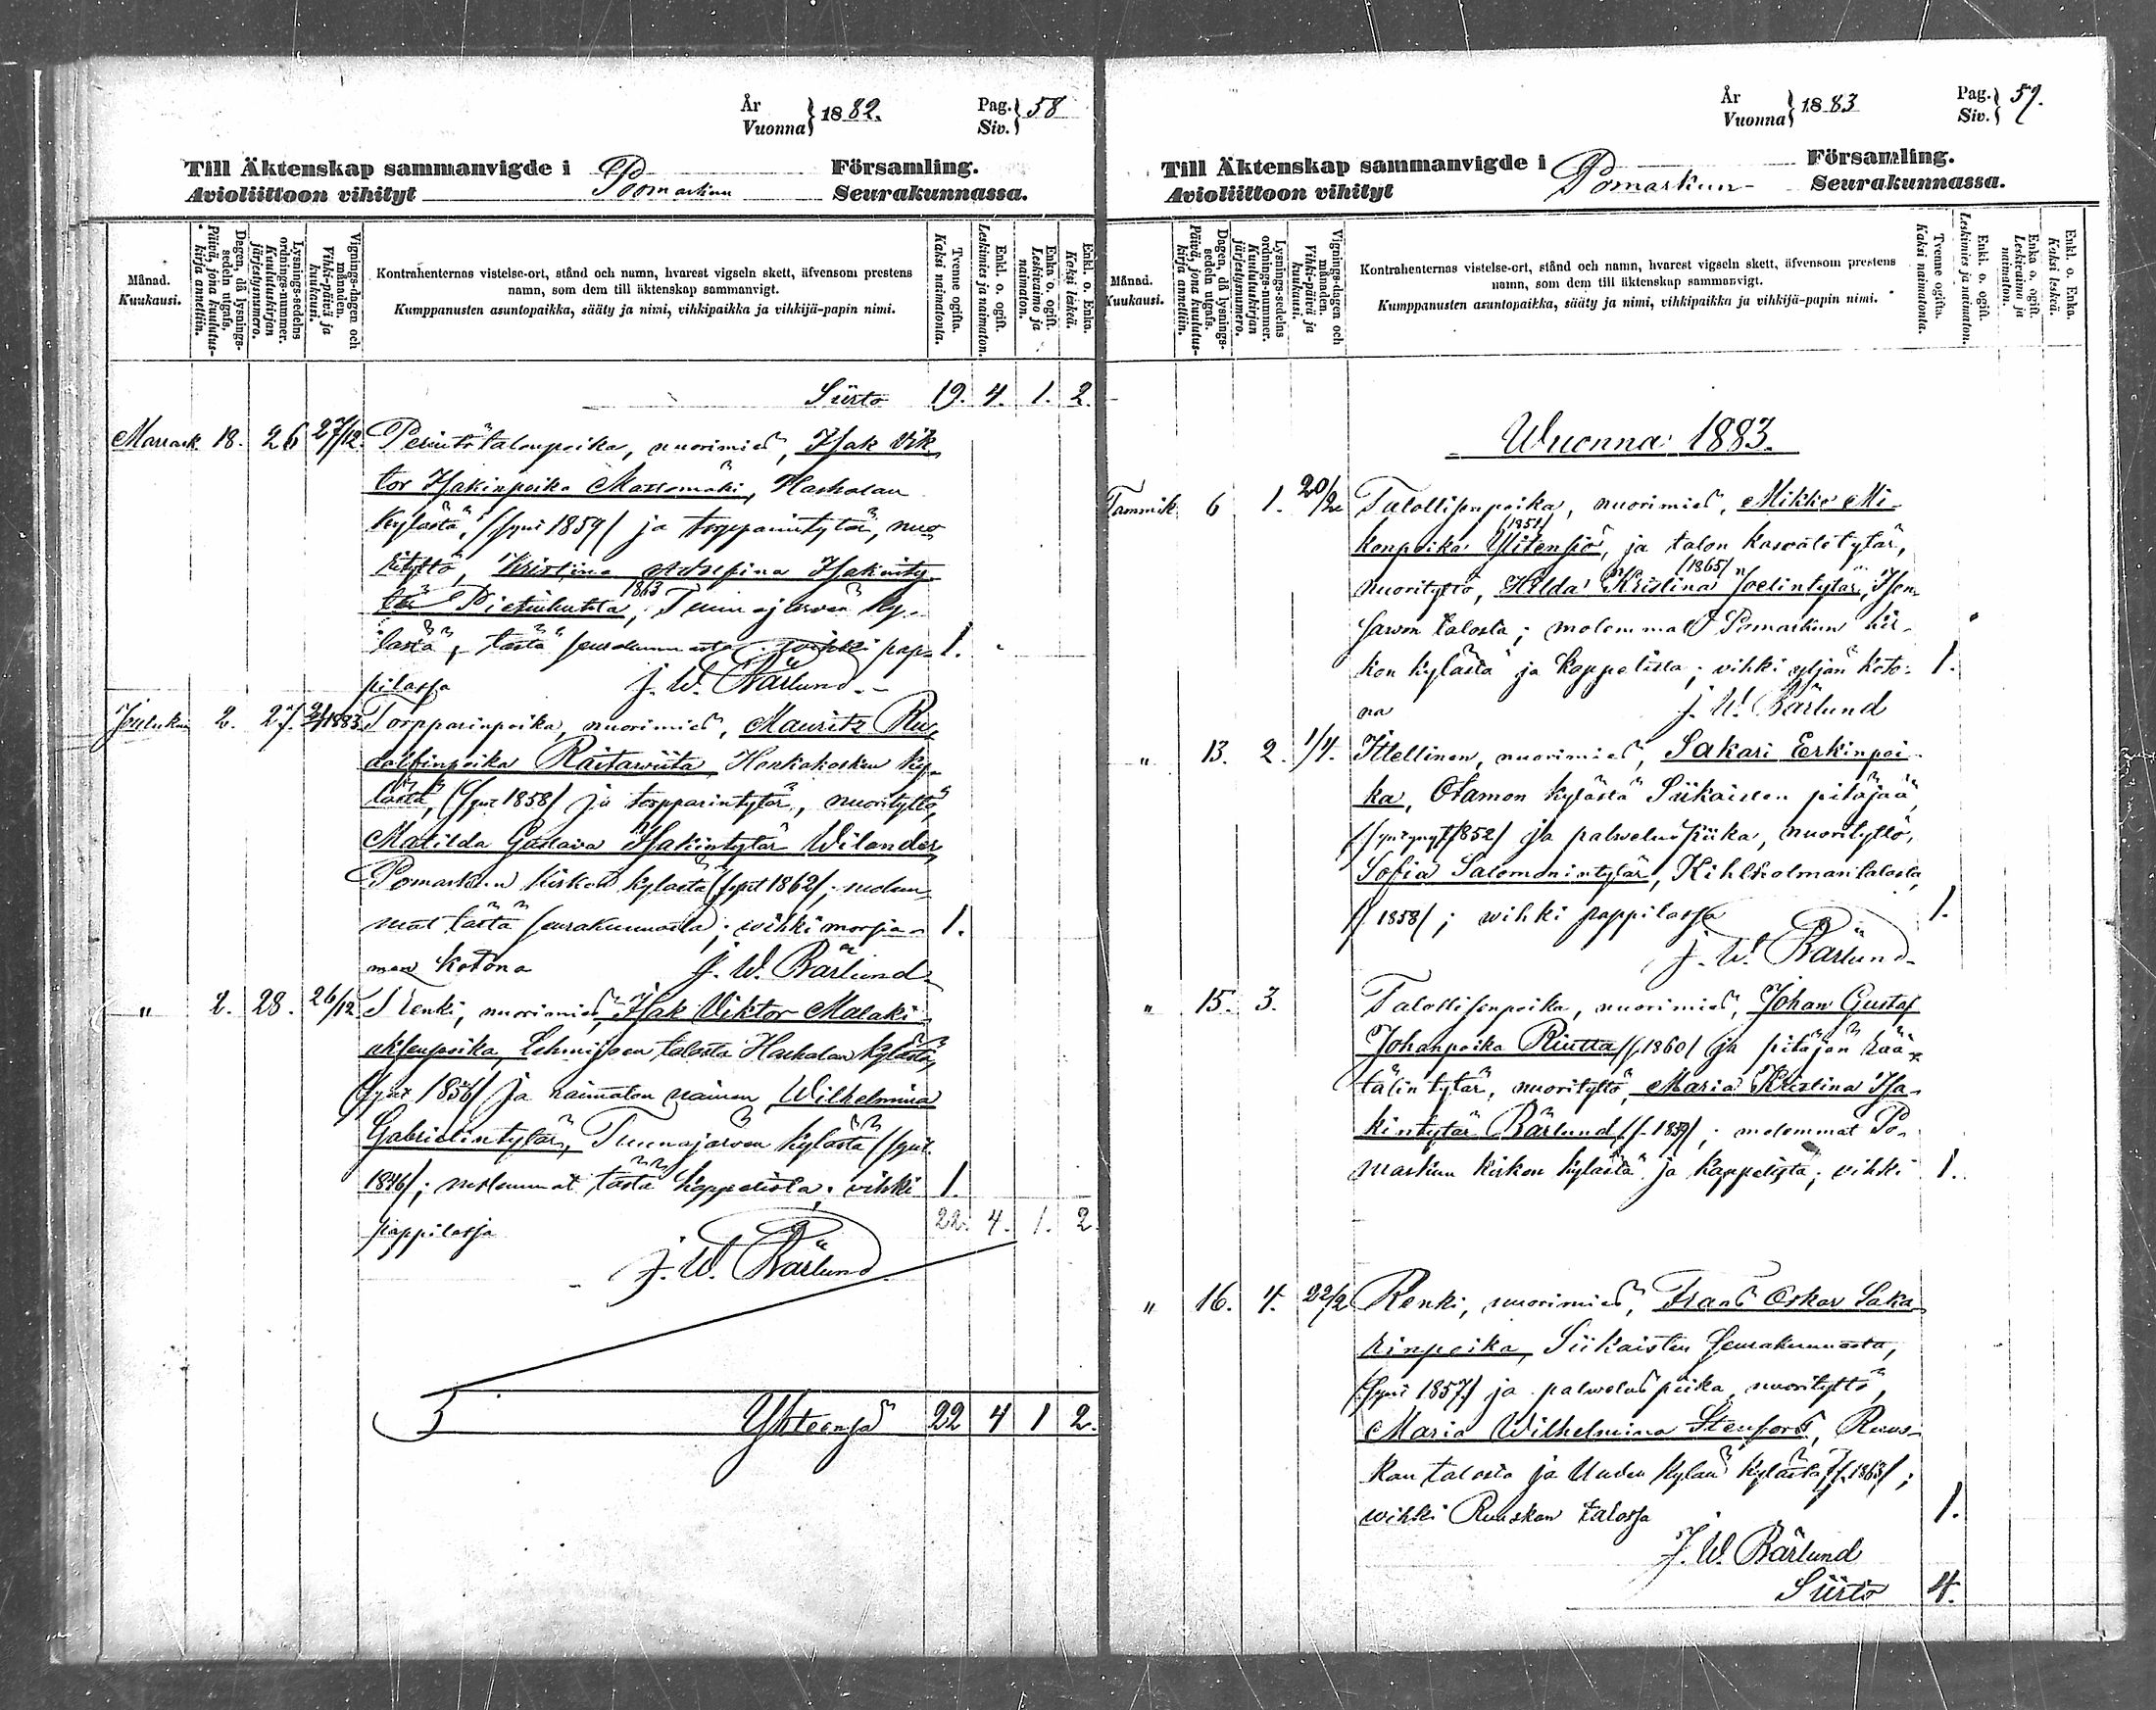 År
Vuonna } 1882.
Pag.
Siv. } 58
Till Äktenskap sammanvigde i Pomarkun Församling.
Avioliittoon vihityt Seurakunnassa.
Månad.
Kuukausi.
Dagen, då lysnings-sedeln utgafs.
Päivä, jona kuulutus-kirja annettiin.
Lysnings-sedelns ordnings-nummer.
Kuulutuskirjan järjestysnumero.
Vignings-dagen och månaden.
Vihki-päivä ja kuukausi.
Kontrahenternas vistelse-ort, stånd och namn, hvarest vigseln skett, äfvensom prestens
namn, som dem till äktenskap sammanvigt.
Kumppanusten asuntopaikka, sääty ja nimi, vihkipaikka ja vihkijä-papin nimi.
Tvenne ogifta.
Kaksi naimatonta.
Enkl. o. ogift.
Leskimies ja naimaton.
Enka o. ogift.
Leskivaimo ja naimaton.
Enkl. o. Enka.
Kaksi leskeä.
Siirto 19. 4. 1. 2.
Marrask. 18. 26 27/12. Perintötalonpoika, nuorimies, Isak Vik-
tor Isakinpoika Mastomäki, Harhalan
kylästä, (synt 1859) ja torpparintytär, nuo-
rityttö, Kristina Josefina Isakinty-
tär 1863 Tuunajärven ky-
lästä, tästä seurakunnasta. vihki pap- 1.
pilassa J. W. Bärlund.
Jouluku 2. 27. 1883 Torpparinpoika, nuorimies, Mauritz Ru-
dolfinpoika Raitawiita, Honkakosken ky-
lästä, (synt 1858) ja torpparintytär, nuorityttö,
Matilda Gustava Isakintytär Wilander,
Pomarkun kirkon kylästä (synt 1862); molem-
mat tästä seurakunnasta; wihki morsia- 1.
men kotona J. W. Bärlund.
" 2. 28. 26/12 Renki, nuorimies, Isak Viktor Malaki-
aksenpoika, Lehmijoen talosta Harhalan kylästä,
(synt 1856) ja naimaton nainen, Wilhelmina
Gabrielintytär, Tuunajärven kylästä (synt.
1846); molemmat tästä kappelista; vihki 1.
pappilassa 22. 4. 1. 2.
J. W. Bärlund.
Yhteensä 22 4 1 2.
År
Vuonna } 1883
Pag.
Siv. } 59.
Till Äktenskap sammanvigde i Pomarkun Församling.
Avioliittoon vihityt Seurakunnassa.
Månad.
Kuukausi.
Dagen, då lysnings-sedeln utgafs.
Päivä, jona kuulutus-kirja annettiin.
Lysnings-sedelns ordnings-nummer.
Kuulutuskirjan järjestysnumero.
Vignings-dagen och månaden.
Vihki-päivä ja kuukausi.
Kontrahenternas vistelse-ort, stånd och namn, hvarest vigseln skett, äfvensom prestens
namn, som dem till äktenskap sammanvigt.
Kumppanusten asuntopaikka, sääty ja nimi, vihkipaikka ja vihkijä-papin nimi.
Tvenne ogifta.
Kaksi naimatonta.
Enkl. o. ogift.
Leskimies ja naimaton.
Enka o. ogift.
Leskivaimo ja naimaton.
Enkl. o. Enka.
Kaksi leskeä.
Wuonna 1883.
Tammik. 6 1. 20/2 Talollisenpoika, nuorimies, Mikko Mi-
konpoika Ylitensiö, ja talon kasvatitytär,
nuorityttö, Hilda Kristina (1865) Joelintytär, Isen-
sawon talosta; molemmat Pomarkun kir-
kon kylästä ja kappelista; vihki yljän koto- 1.
na J. W. Bärlund
" 13. 2. 1/4. Itellinen, nuorimies, Sakari Erkinpoi-
ka, Otamon kylästä Siikaisten pitäjää,
1852) ja palwelus piika, nuorityttö,
Sofia Salomonintytär, Kihlholman talosta,
(1858); wihki pappilassa 1.
J. W. Bärlund
" 15. 3. Talollisenpoika, nuorimies, Johan Gustaf
Johanpoika Riutta (s. 1860) ja pitäjän rää-
tälin tytär, nuorityttö, Maria Kristina Isa-
kintytär Bärlund, (s. 1859); molemmat Po-
markun kirkon kylästä ja kappelista; vihki 1.
" 16. 4. 22/2 Renki, nuorimies, Frans Oskar Saka-
rinpoika, Siikaisten seurakunnasta,
(synt 1857) ja palwelus piika, nuorityttö,
Maria Wilhelmina Stenfors, Ruus-
kan talosta ja Uuden kylän kylästä (s. 1863);
wihki Ruuskan talossa 1.
J. W. Bärlund
Siirto 4.